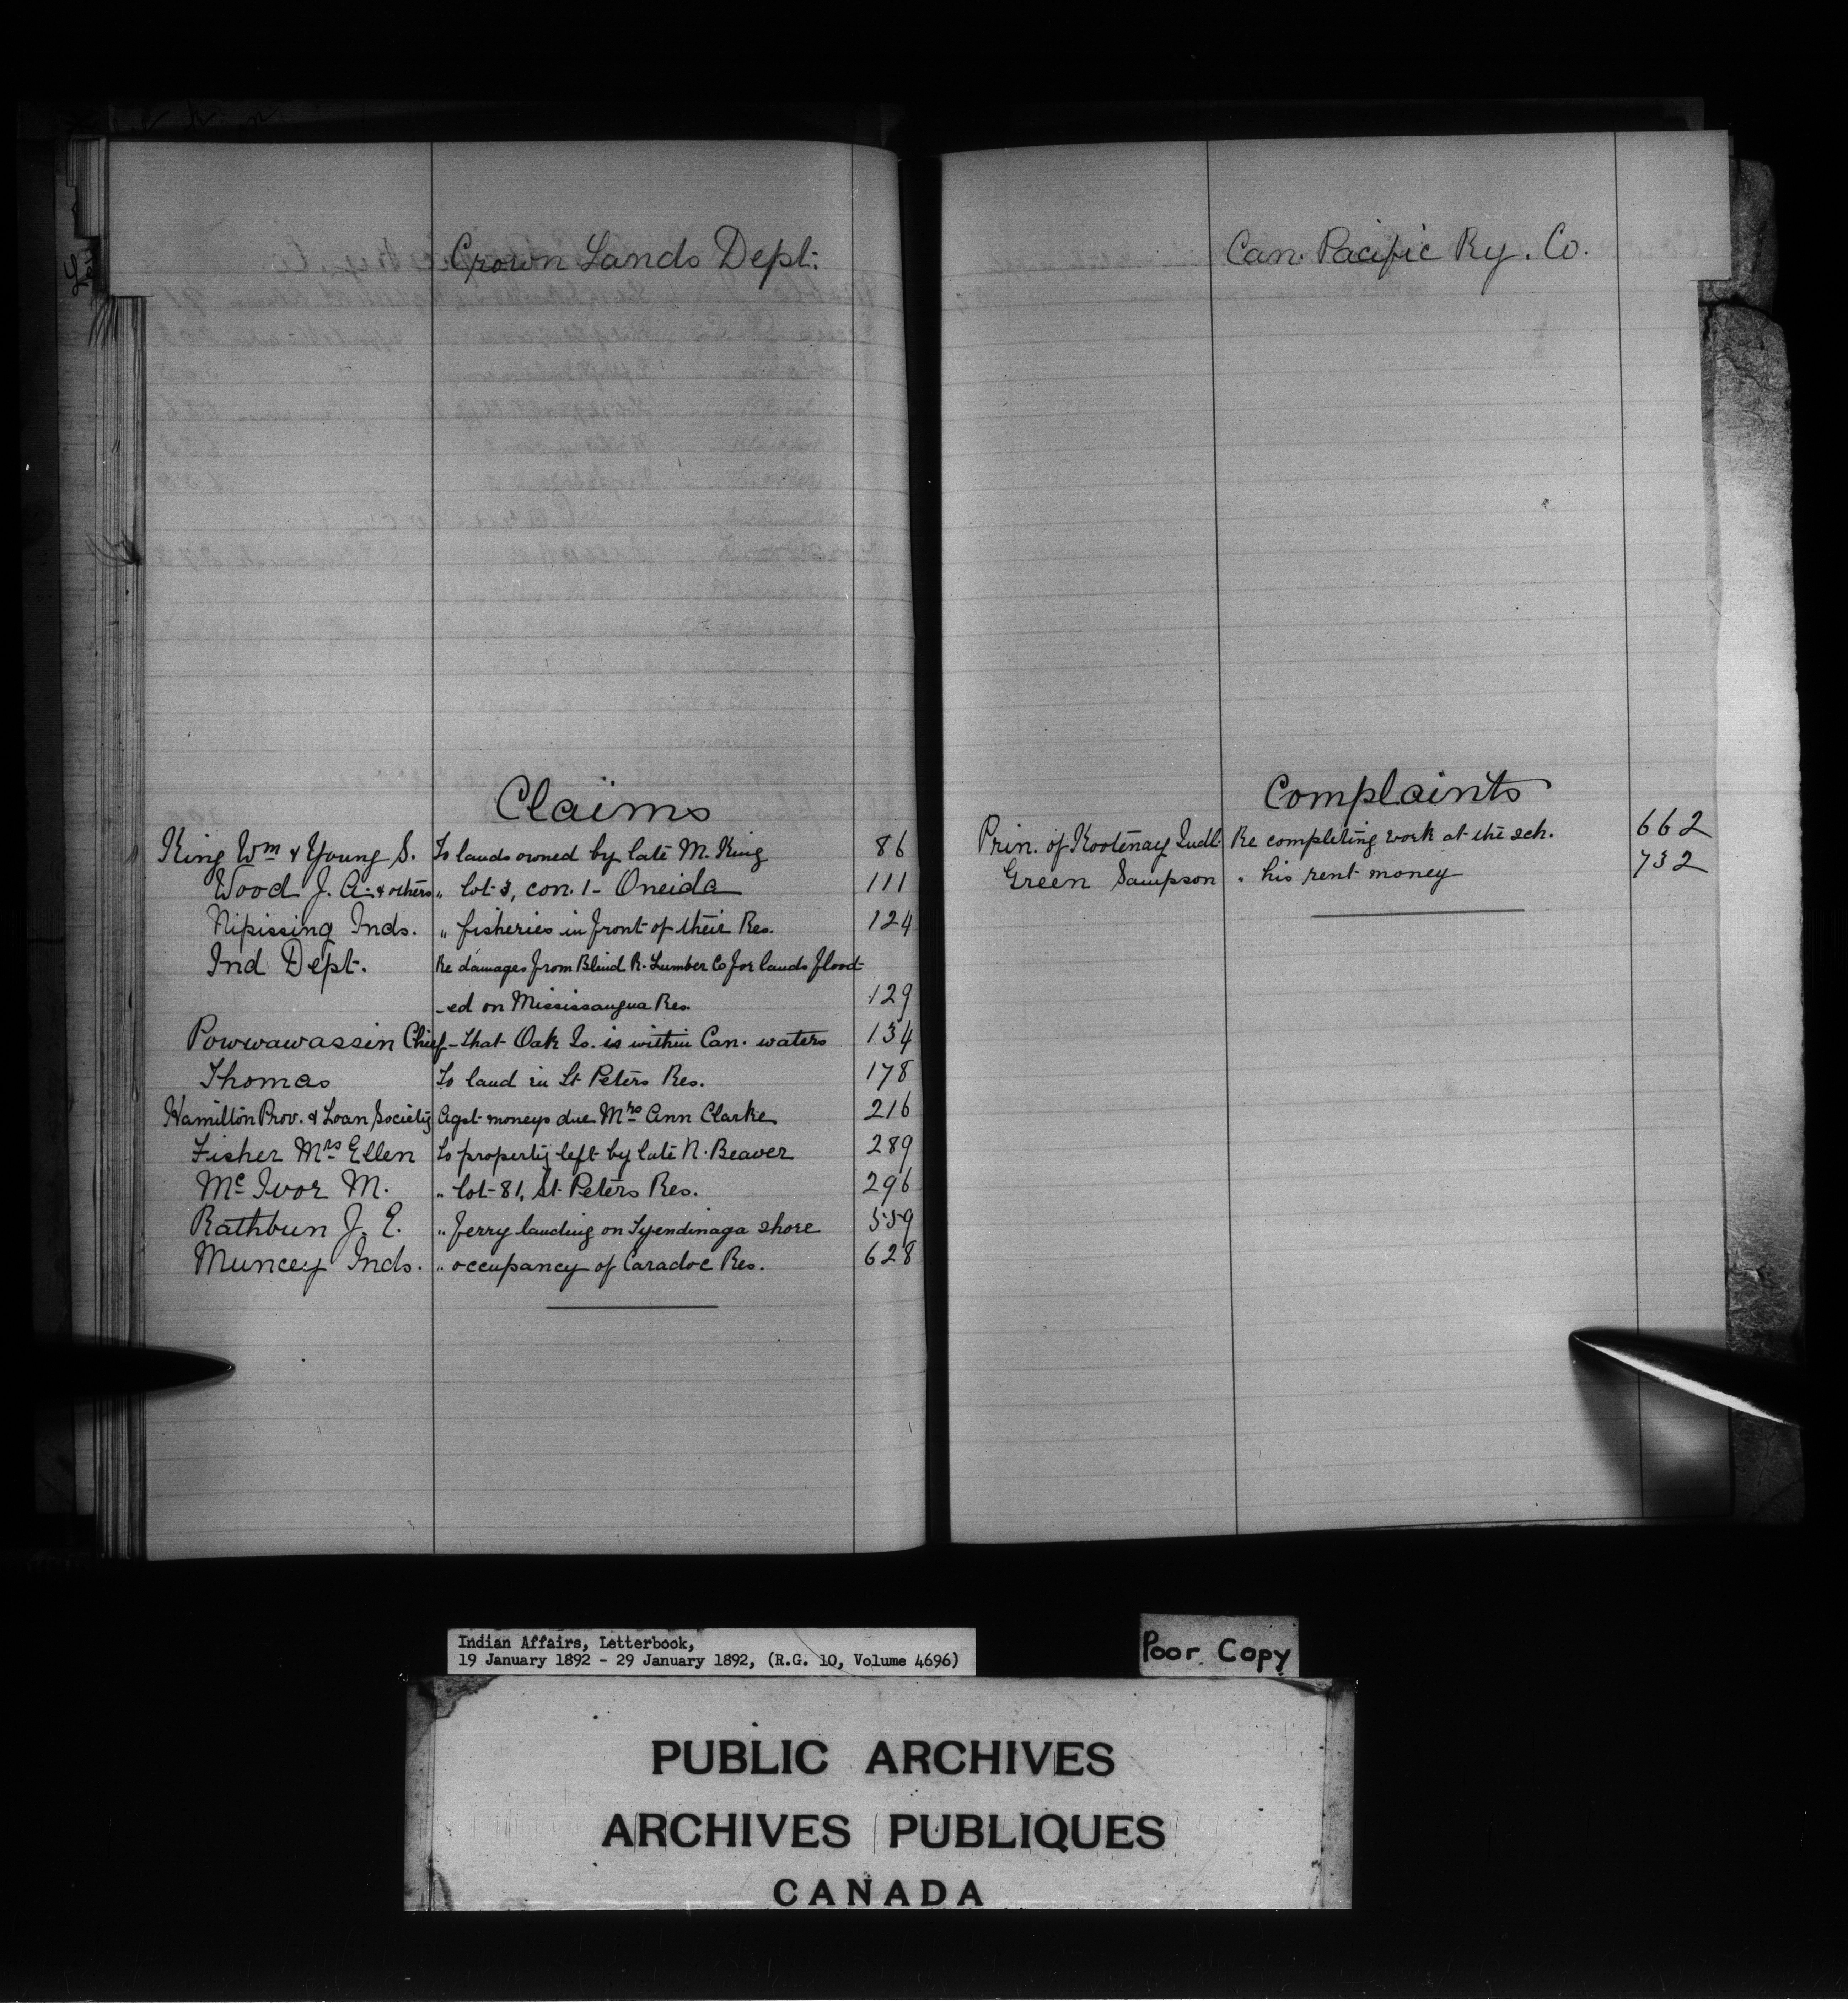 Crown Lands Dept.
Claims
King Wm & Young S. To lands owned by late M. King 86
Wood J. A. & others „ lot 3, con. 1 - Oneida 111
Nipissing Inds. „ fisheries in front of their Res. 124
Ind Dept. Re damages from Blind R. Lumber Co for lands flood-
-ed on Mississaugua Res. 129
Powwawassin Chief - That Oak Is. is within Can. waters 134
Thomas To land in St Peters Res. 178
Hamilton Prov. & Loan Society Agst moneys due Mrs Ann Clarke 216
Fisher Mrs Ellen To property left by late N. Beaver 289
Mc Ivor M. „ lot 81, St. Peters Res. 296
Rathbun J. E. „ ferry landing on Tyendinaga shore 559
Muncey Inds. „ occupancy of Caradoc Res. 628
Can. Pacific Ry. Co.
Complaints
Prin. of Kootenay Indl. Re completing work at the sch. 662
Green Sampson „ his rent money 732
Indian Affairs, Letterbook,
19 January 1892 - 29 January 1892, (R.G. 10, Volume 4696)
Poor Copy
PUBLIC ARCHIVES
ARCHIVES PUBLIQUES
CANADA